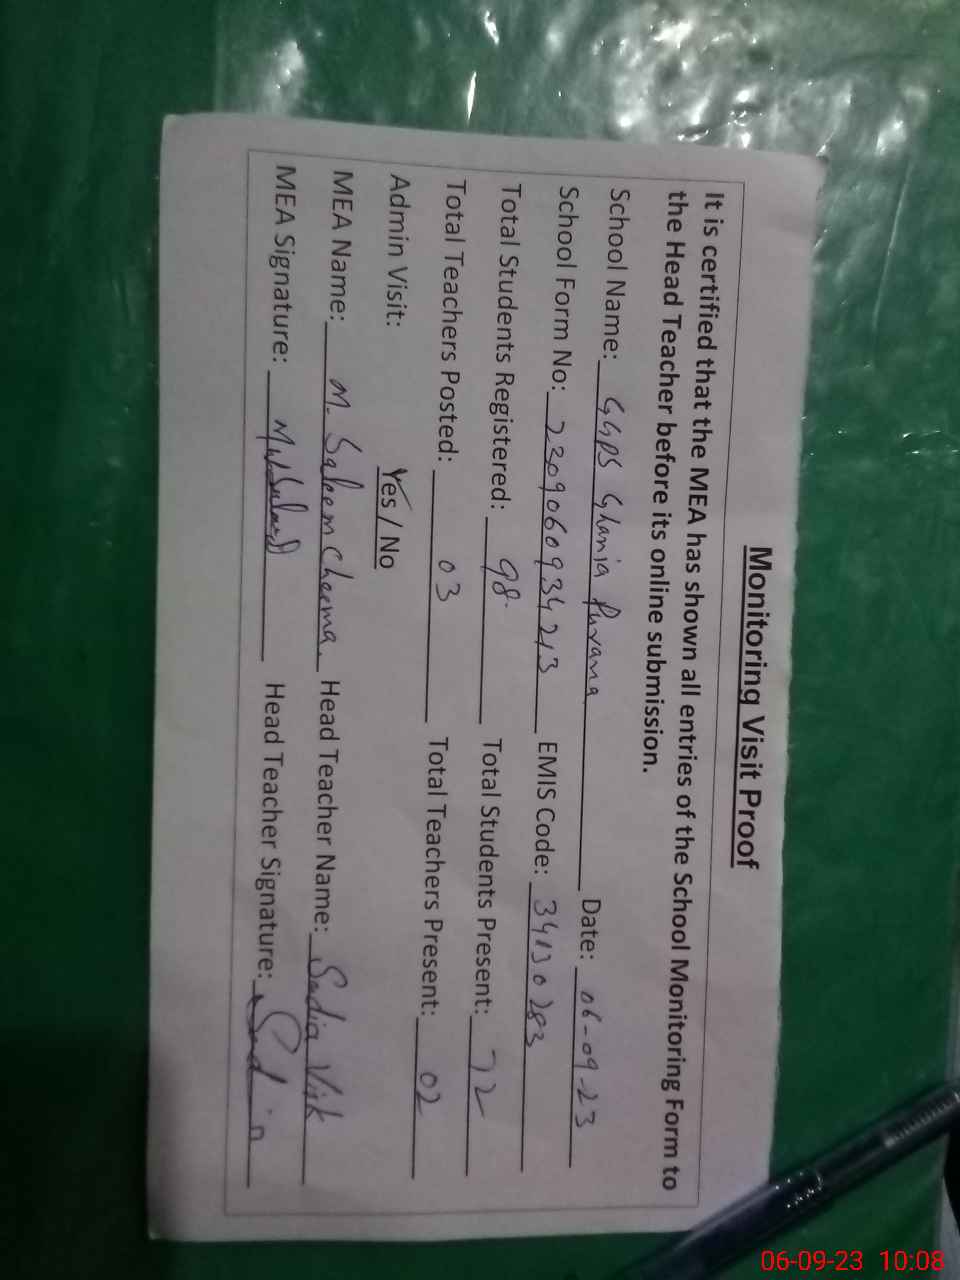 Monitoring Visit Proof
It is certified that the MEA has shown all entries of the School Monitoring Form to
the Head Teacher before its online submission.
School Name: GGPS Ghania Purana Date: 06-09-23
School Form No: 2209060934213 EMIS Code: 34130283
Total Students Registered: 98 Total Students Present: 72
Total Teachers Posted: 03 Total Teachers Present: 02
Admin Visit: Yes / No
MEA Name: M. Saleem Cheema Head Teacher Name: Sadia Virk
MEA Signature: Head Teacher Signature: Sadia
06-09-23 10:08